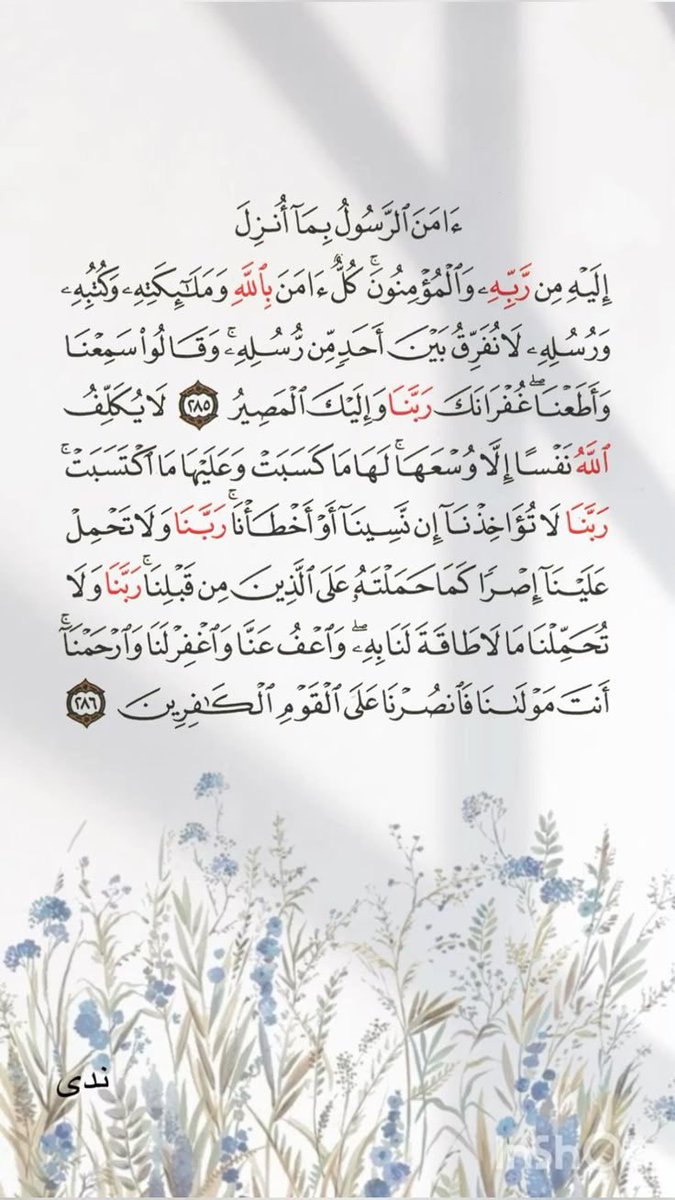 ءَامَنَ ٱلرَّسُولُ بِمَآ أُنزِلَ
إِلَيْهِ مِن رَّبِّهِۦ وَٱلْمُؤْمِنُونَۚ كُلٌّ ءَامَنَ بِٱللَّهِ وَمَلَٰٓئِكَتِهِۦ وَكُتُبِهِۦ
وَرُسُلِهِۦ لَا نُفَرِّقُ بَيْنَ أَحَدٍ مِّن رُّسُلِهِۦۚ وَقَالُوا۟ سَمِعْنَا
وَأَطَعْنَاۖ غُفْرَانَكَ رَبَّنَا وَإِلَيْكَ ٱلْمَصِيرُ ٢٨٥ لَا يُكَلِّفُ
ٱللَّهُ نَفْسًا إِلَّا وُسْعَهَاۚ لَهَا مَا كَسَبَتْ وَعَلَيْهَا مَا ٱكْتَسَبَتْۗ
رَبَّنَا لَا تُؤَاخِذْنَآ إِن نَّسِينَآ أَوْ أَخْطَأْنَاۚ رَبَّنَا وَلَا تَحْمِلْ
عَلَيْنَآ إِصْرًا كَمَا حَمَلْتَهُۥ عَلَى ٱلَّذِينَ مِن قَبْلِنَاۚ رَبَّنَا وَلَا
تُحَمِّلْنَا مَا لَا طَاقَةَ لَنَا بِهِۦۖ وَٱعْفُ عَنَّا وَٱغْفِرْ لَنَا وَٱرْحَمْنَآۚ
أَنتَ مَوْلَىٰنَا فَٱنصُرْنَا عَلَى ٱلْقَوْمِ ٱلْكَٰفِرِينَ ٢٨٦
ندى
InShOt